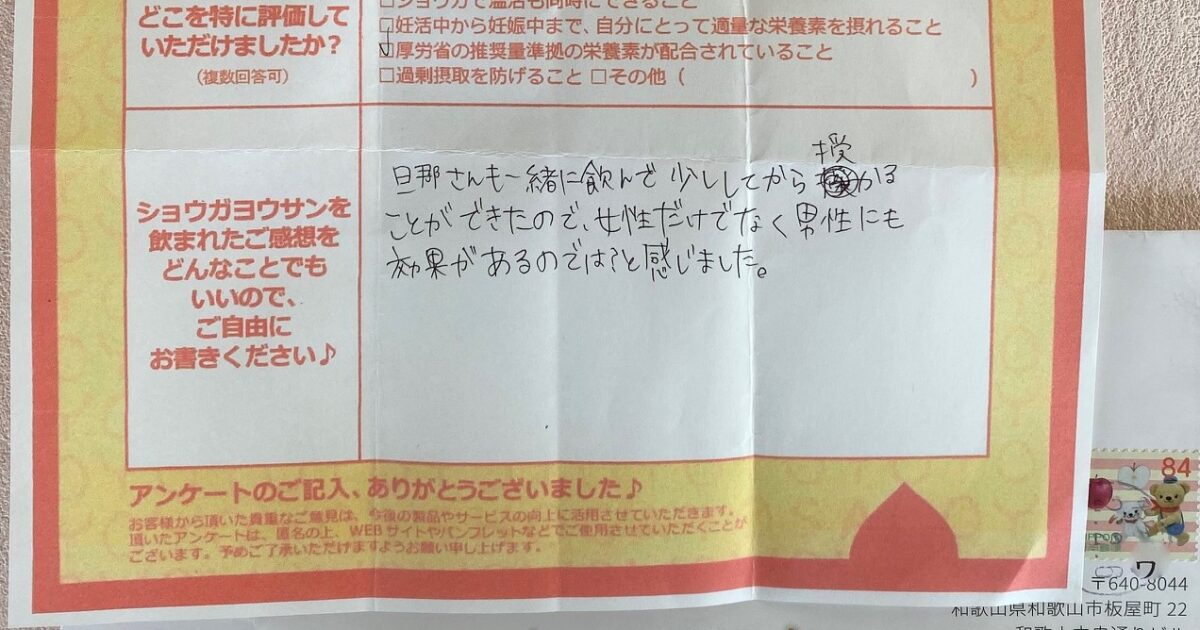 どこを特に評価して
いただけましたか？
（複数回答可）
□ショウガで温活も同時にできること
□妊活中から妊娠中まで、自分にとって適量な栄養素を摂れること
□厚労省の推奨量準拠の栄養素が配合されていること
□過剰摂取を防げること □その他（ ）
ショウガヨウサンを
飲まれたご感想を
どんなことでも
いいので、
ご自由に
お書きください♪
授
旦那さんも一緒に飲んで少ししてから かる
ことができたので、女性だけでなく男性にも
効果があるのでは?と感じました。
アンケートのご記入、ありがとうございました♪
お客様から頂いた貴重なご意見は、今後の製品やサービスの向上に活用させていただきます。
頂いたアンケートは、匿名の上、WEBサイトやパンフレットなどでご使用させていただくことが
ございます。予めご了承いただけますようお願い申し上げます。
84
ワ
〒640-8044
和歌山県和歌山市板屋町 22